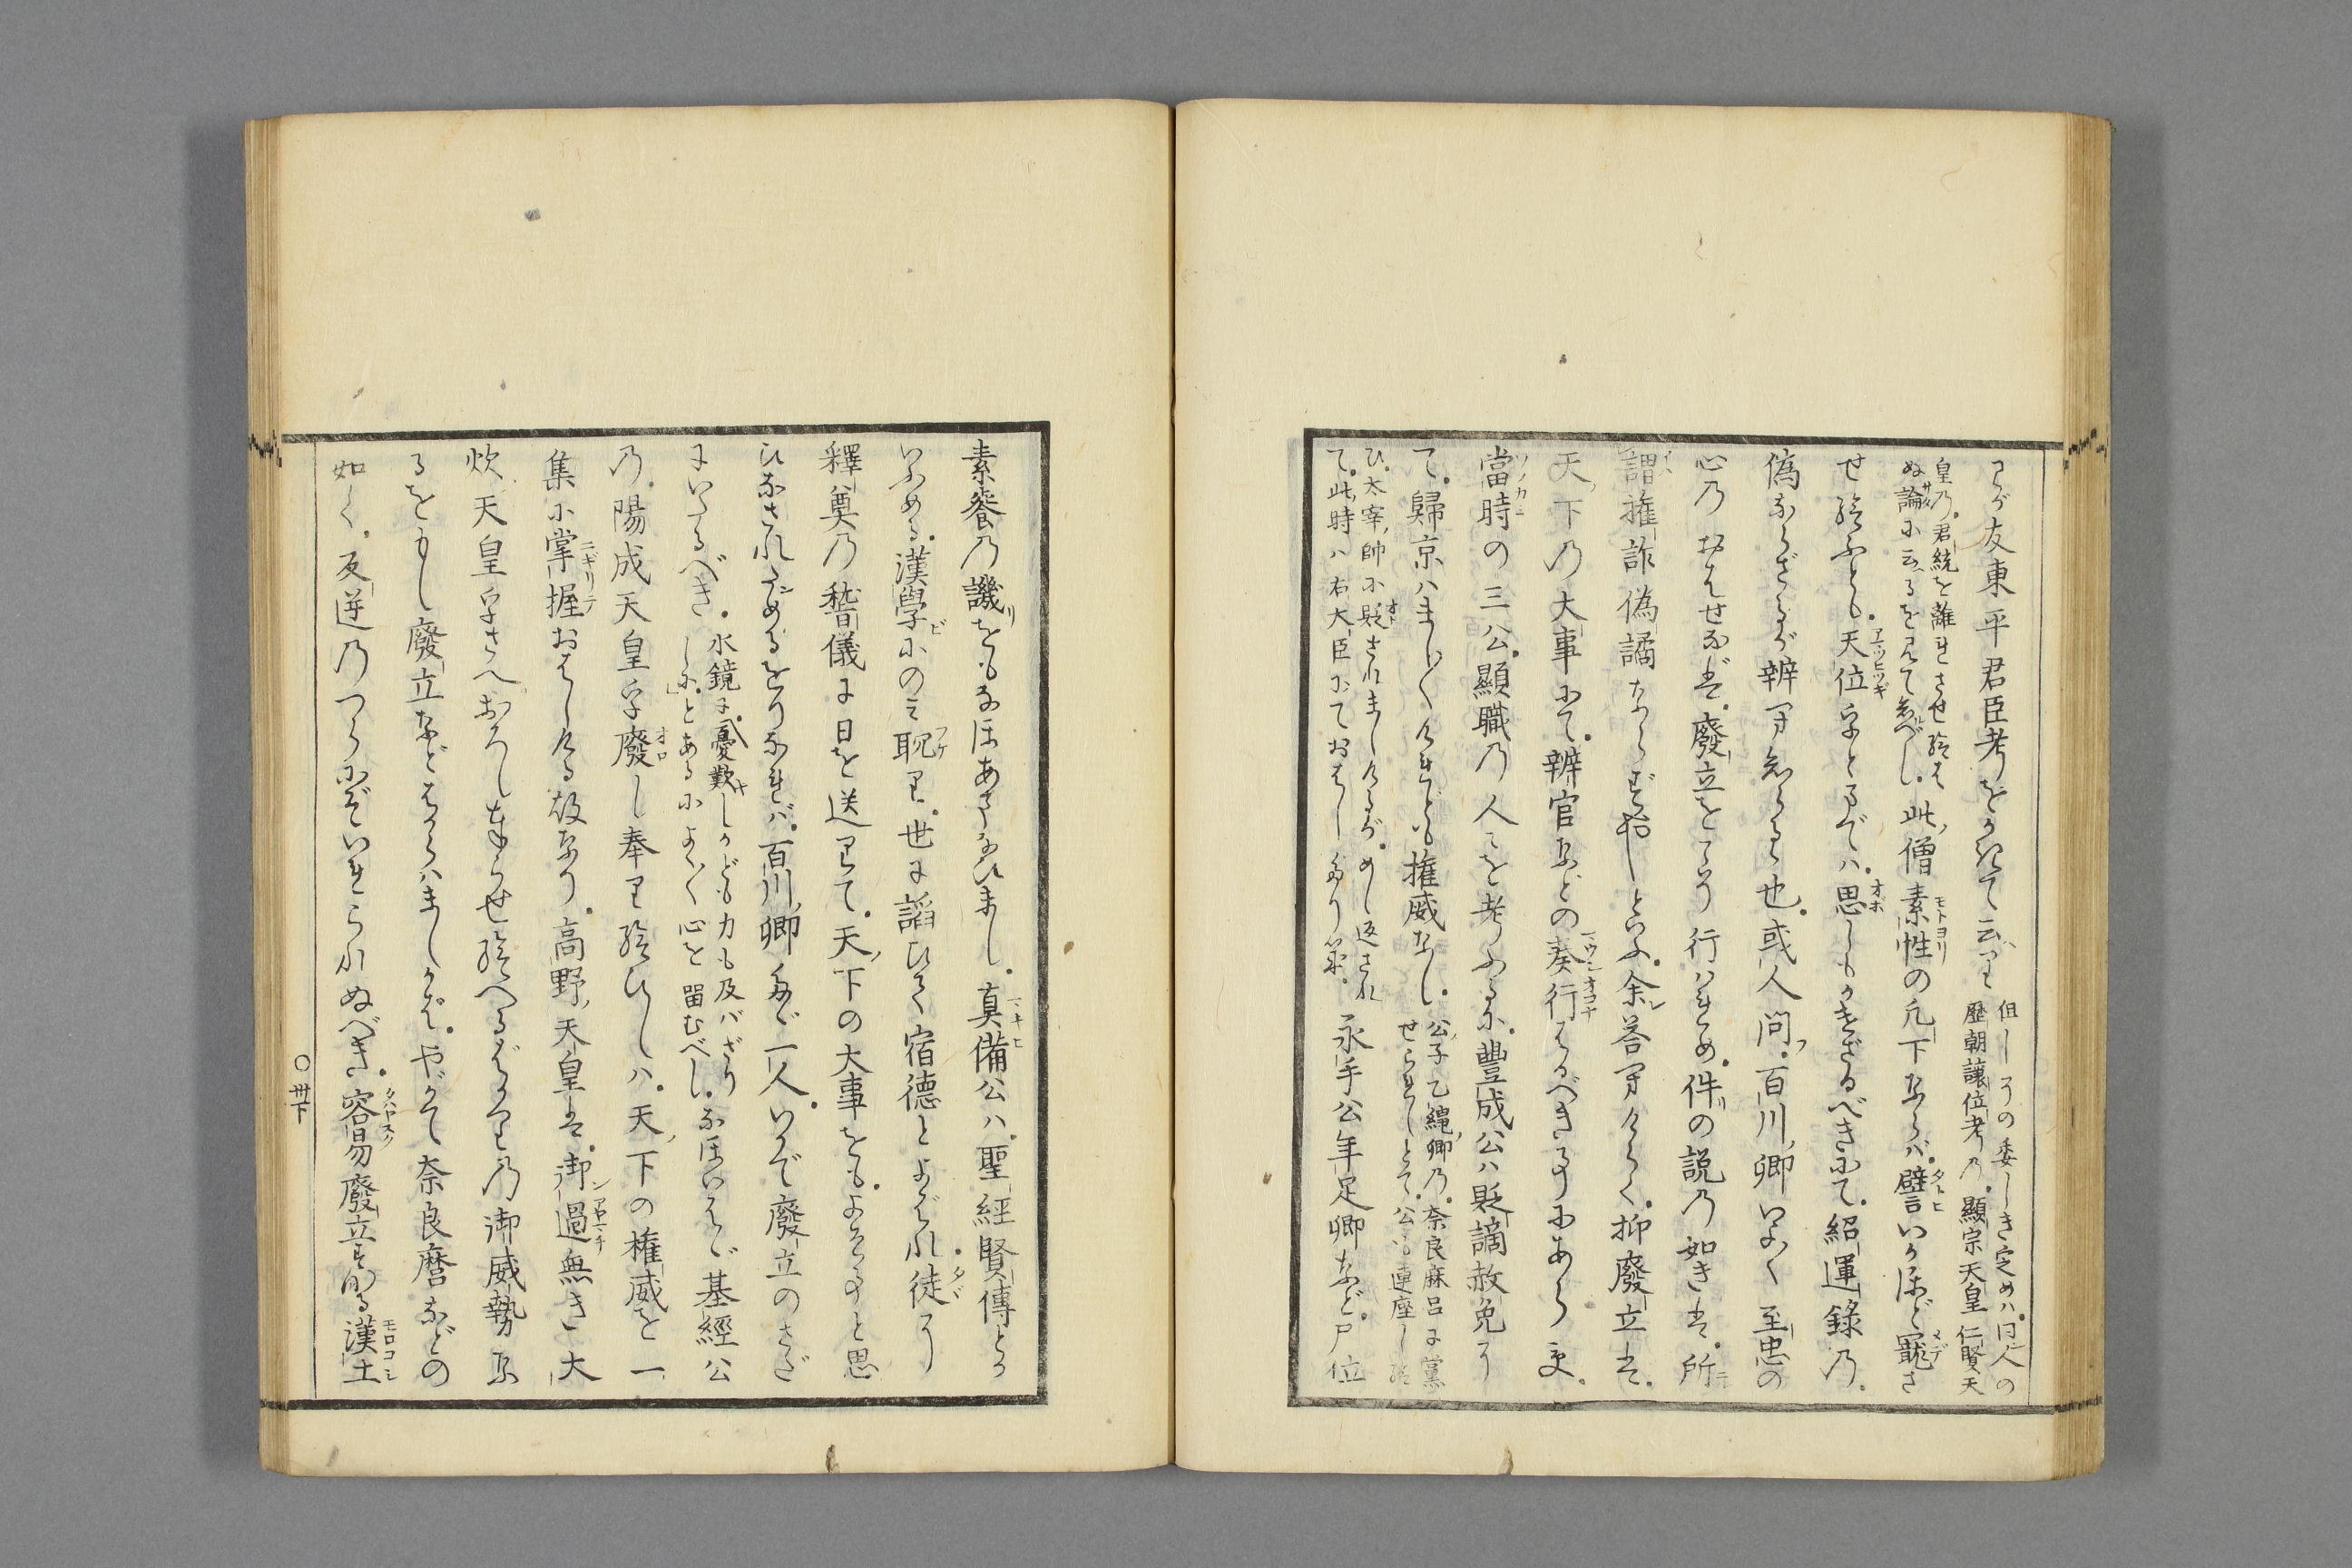 わが友東平君臣考をかきて云り
但しその委しき定めハ同人の
歴朝讓位考乃顯宗天皇仁賢天
皇乃君統を離れさせ給はぬ論に云るを見て知べし
此僧素性の凡下ならバ譬いかほど寵さ
せ給ふとも天位をとまでハ思しもかけざるべきにて紹運錄乃
偽ならざるが辨へ知らるゝ也或人問百川卿いよく至忠の
心乃おはせなば廢立をこそ行ハれめ件の説乃如きは所
謂権詐偽譎ならずやといふ余答へけらく抑廢立は
天下乃大事にて辨官などの奏行はるべき事にあらず更
當時の三公顯職乃人々を考ふるに豐成公ハ貶謫赦免あり
て歸京ハまし〳〵けれども権威なし
公子乙縄卿乃奈良麻呂に黨
せられしとて公も連座し給
ひ太宰帥に貶されましけるが めし返され
て此時ハ右大臣にておはしたり
永手公年足卿など尸位
素餐乃譏をもなほあさなひまし真備公ハ聖經賢傳とか
いふめる漢學にのミ耽り世に謟ひて宿德とよばれ徒に
釋奠乃稽儀に日を送りて天下の大事をもよその事と思
ひなされためるをりなれバ百川卿たゞ一人いかで廢立のさだ
にいたるべき
水鏡に憂歎しかども力も及バざり
しにとあるによく〳〵心を留むべし
なほいはゞ基經公
乃陽成天皇を廢し奉り給ひしハ天下の権威を一
集に掌握おはしける故なり高野天皇は御過無き大
炊天皇をさへおろし奉らせ給へるばかり乃御威勢な
るをもし廢立などはからハましかばやがて奈良麿などの
如く反逆乃つみにぞいれられぬべき容易廢立する漢土
〇卅下